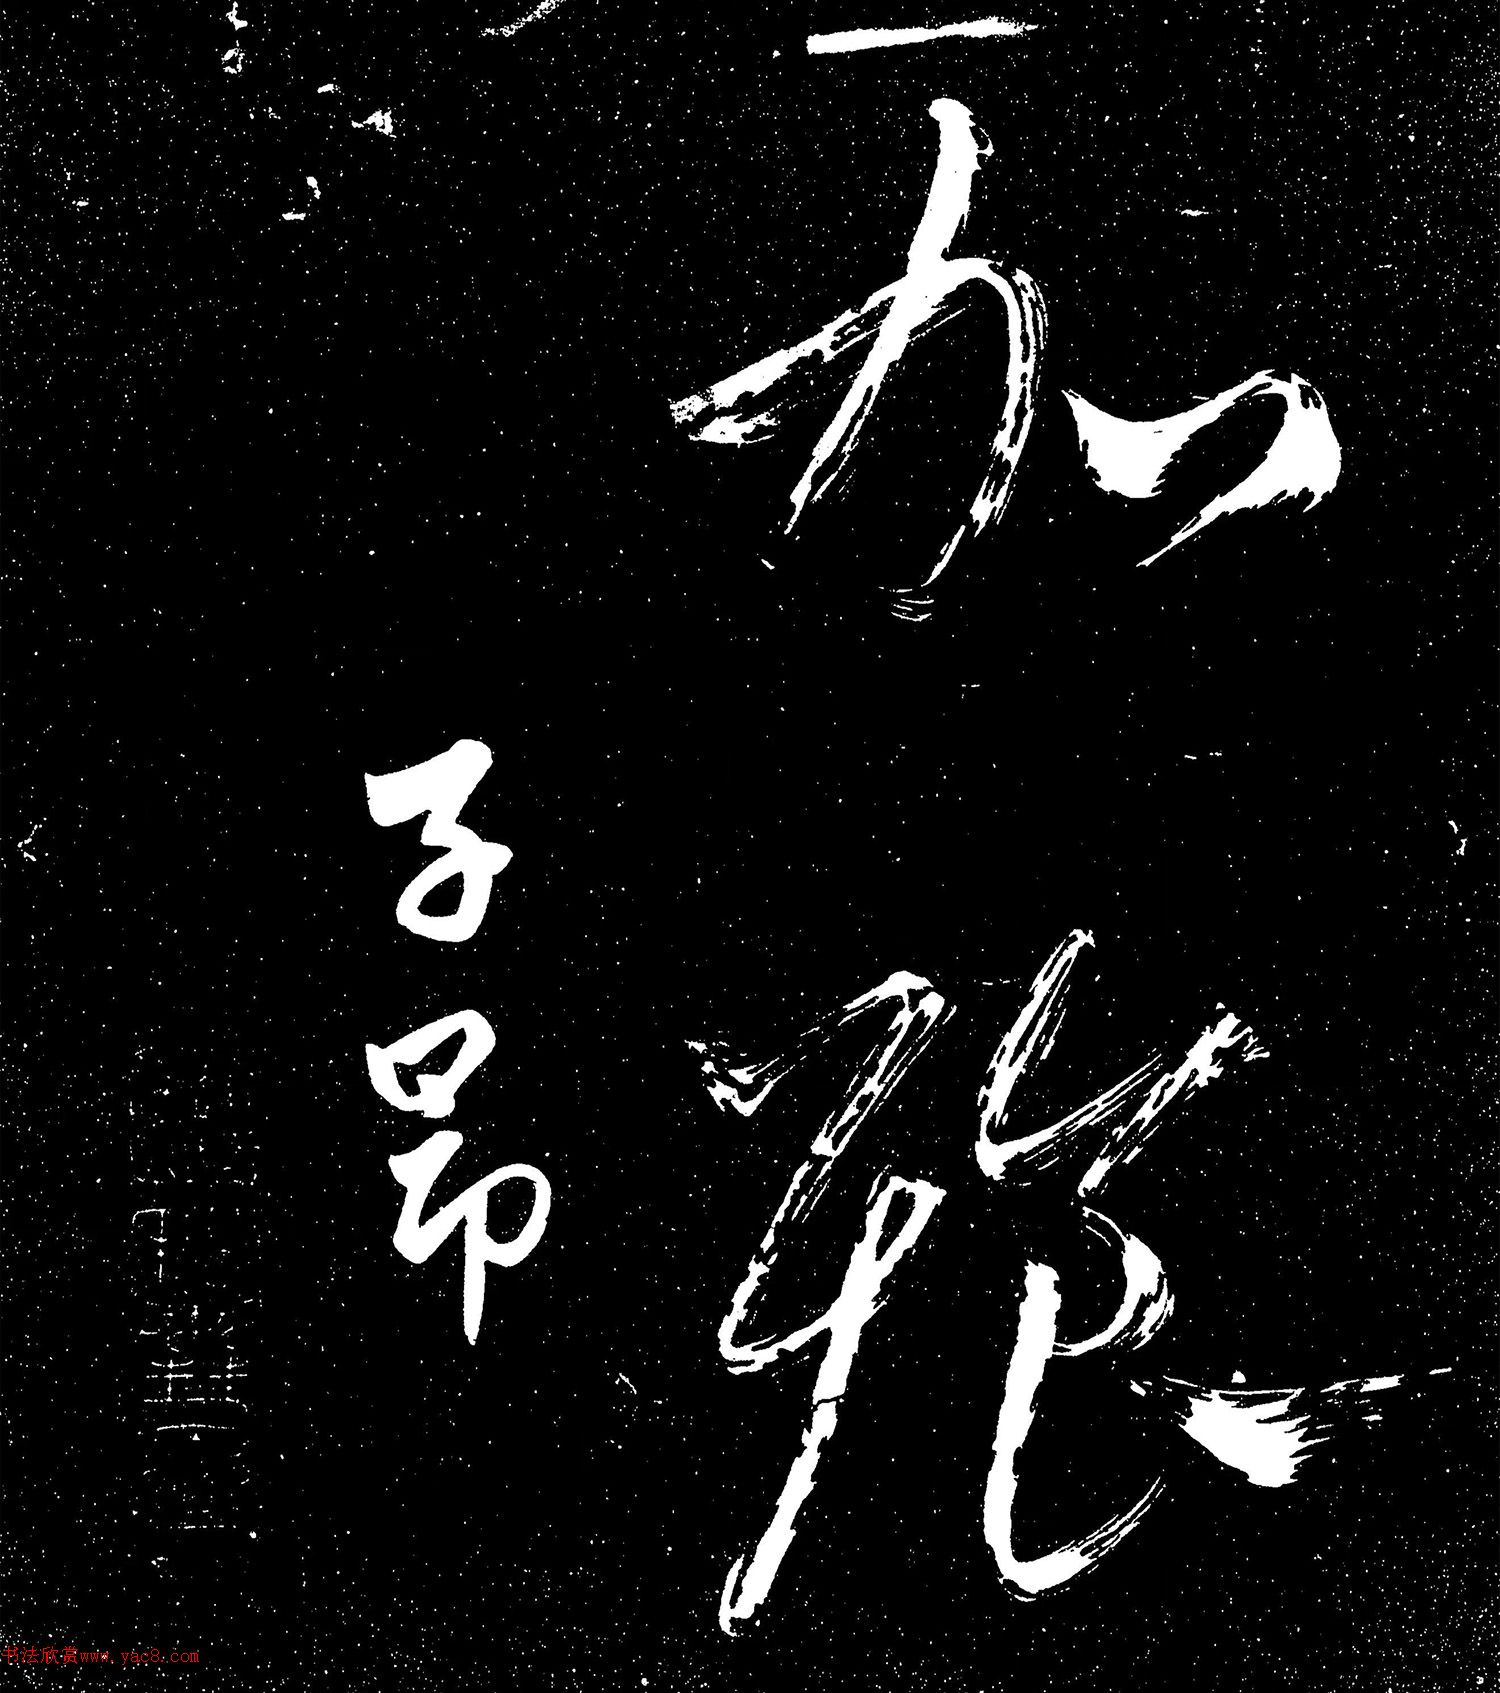 加
子昂
书法欣赏www.yac8.com